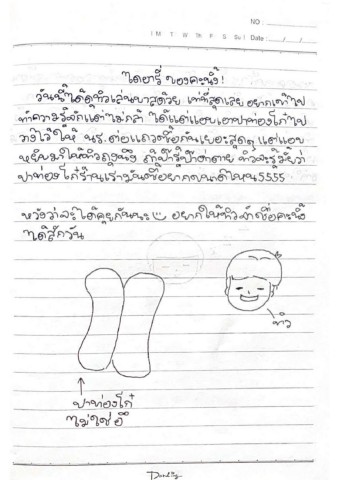 NO :
I M T W Th F S Su! Date : / /
ไดอารี่ ของคะนิ้ง!
วันนี้ได้ดูทิวเล่นบาสด้วย เท่ที่สุดเลย อยากเข้าไป
ทำความรู้จักแต่ไม่กล้า ได้แต่แอบเอาปาท่องโก๋ไป
วางไว้ให้ นร. ต่อแถวซื้อกันเยอะสุดๆ แต่แอบ
หยิบมาให้ทิวถุงนึง ถ้าป๊ารู้ป๊าต่อตาย ทิวจะรู้มั้ยว่า
ปาท่องโก๋ร้านเรามันซื้อยากขนาดไหน5555
หวังว่าจะได้คุยกันนะ อยากให้ทิวจำชื่อคะนิ้ง
ได้สักวัน
ทิว
ปาท่องโก๋
ไม่ใช่อึ